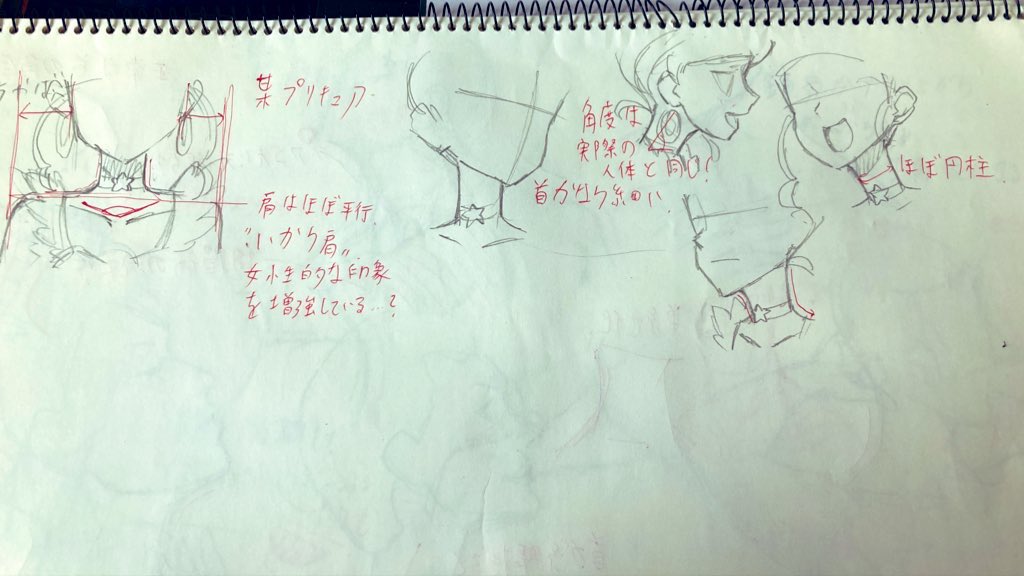 某プリキュア
肩はほぼ平行
"いかり肩"
女性的な印象
を増強している…?
角度は
実際の
人体と同じ!
首が細い
ほぼ円柱